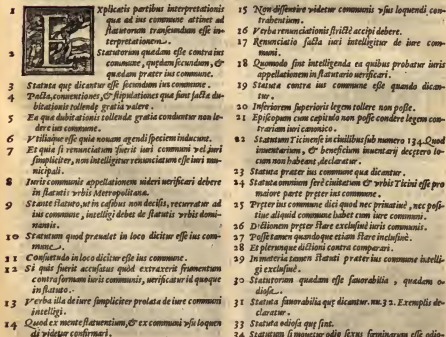 1 Explicatis partibus interpretationis
qua ad ius commune attinet ad
statutorum transeundum esse in-
terpretationem.
2 Statutorum quædam esse contra ius
commune, quædam secundum, &
quædam prater ius commune.
3 Statuta quę dicantur esse secundum ius commune.
4 Pacta, conuentiones, & stipulationes quæ sunt facta du-
bitationis tollendę gratia valere.
5 Ea quæ dubitationis tollendę gratia conduntur non lę-
dere ius commune.
6 Vtiliaque esse quia nouam agendi speciem inducunt.
7 Et quia si renunciatum fuerit iuri communi vel iuri
simpliciter, non intelligitur renunciatum esse iuri mu-
nicipali.
8 Iuris communis appellationem videri verificari debere
in statutis vrbis Metropolitana.
9 Stante statuto, vt in casibus non decisis, recurratur ad
ius commune, intelligi debet de statutis vrbis domi-
nantis.
10 Statutum quod præualet in loco dicitur esse ius com-
mune.
11 Consuetudo in loco dicitur esse ius commune.
12 Si quis fuerit accusatus quòd extraxerit frumentum
contra formam iuris communis, verificatur id quoque
in statuto.
13 Verba illa de iure simpliciter prolata de iure communi
intelligi.
14 Quod ex mente statuentium, & ex communi vsu loquen
di videtur confirmari.
15 Non dissentire videtur communis vsus loquendi con-
trahentium.
16 Verba renunciationis strictè accipi debere.
17 Renunciatio facta iuri intelligitur de iure com-
muni.
18 Quomodo sint intelligenda ea quibus probatur iuris
appellationem in statutario verificari.
19 Statuta contra ius commune esse quando dican-
tur.
20 Inferiorem superioris legem tollere non posse.
21 Episcopum cum capitulo non posse condere legem con-
trariam iuri canonico.
22 Statutum Ticinense in ciuilibus sub numero 134. Quod
inuentarium, & beneficium inuentarij decętero lo-
cum non habeant, declaratur.
23 Statuta præter ius commune quæ dicantur.
24 Statuta omnium ferè ciuitatum & vrbis Ticini esse pro
maiore parte pręter ius commune.
25 Pręter ius commune dici quod nec priuatiuè, nec posi-
tiuè aliquid commune habet cum iure communi.
26 Dictionem pręter stare exclusiuè iuris communis.
27 Posse tamen quandoque etiam stare inclusiuè.
28 Et plerunque dictioni contra comparari.
29 In materia tamen stanti prater ius commune intelli-
gi exclusiuè.
30 Statutorum quædam esse fauorabilia, quædam o-
diosa.
31 Statuta fauorabilia quę dicantur. nu. 32. Exemplis de-
claratur.
33 Statuta odiosa quę sint.
34 Statutum si mouetur odio sexus fæminarum esse odio-